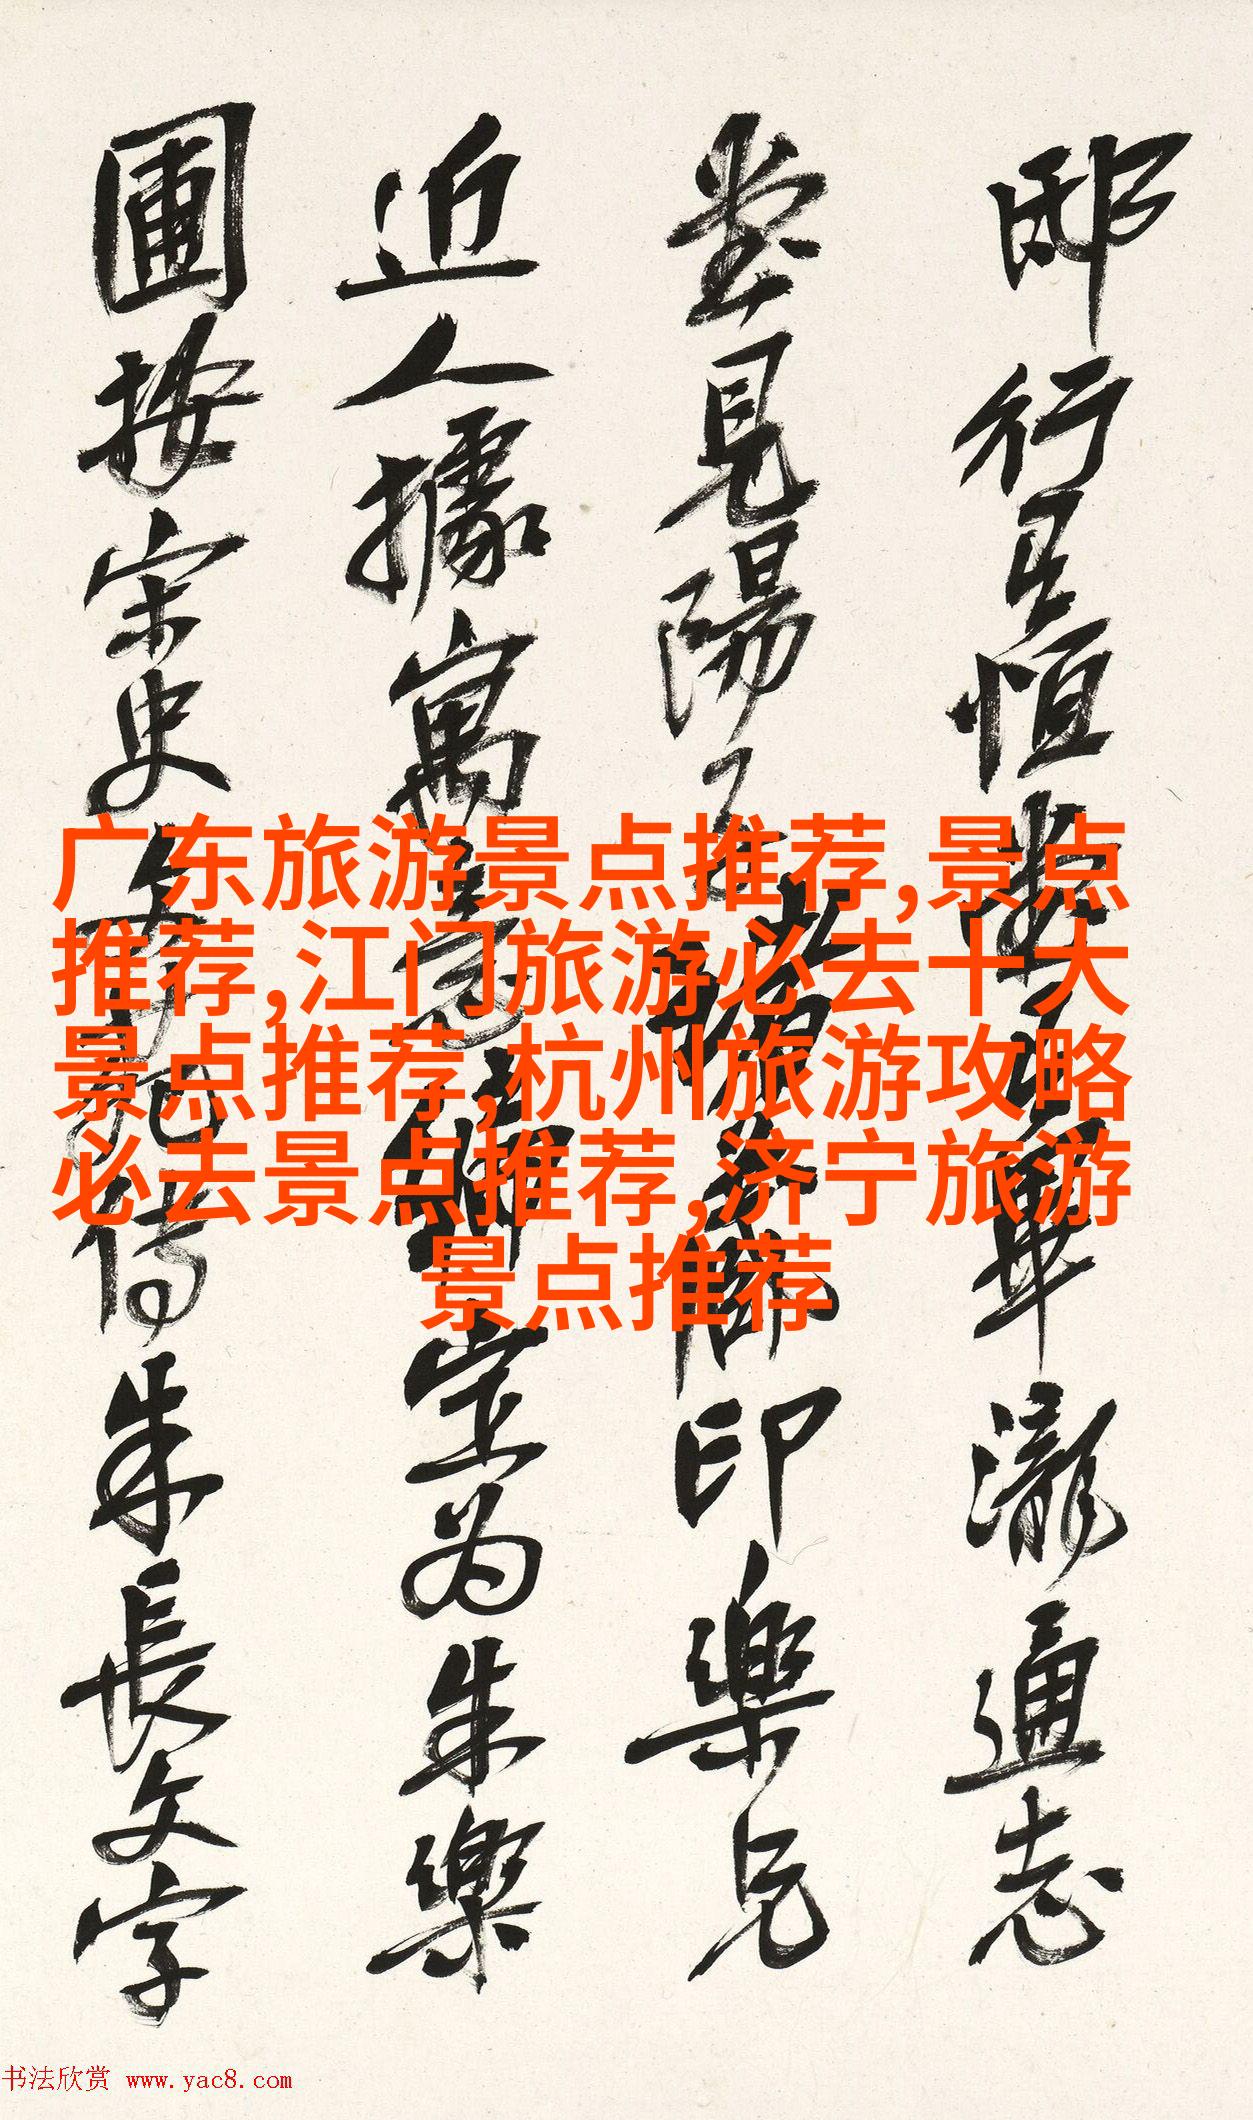 邸行恒畢瀧通志
堂見陽印樂兄
近人據寓意編定为朱樂
圃按宋史文苑傳朱長文字
广东旅游景点推荐,景点
推荐,江门旅游必去十大
景点推荐,杭州旅游攻略
必去景点推荐,济宁旅游
景点推荐
书法欣赏 www.yac8.com